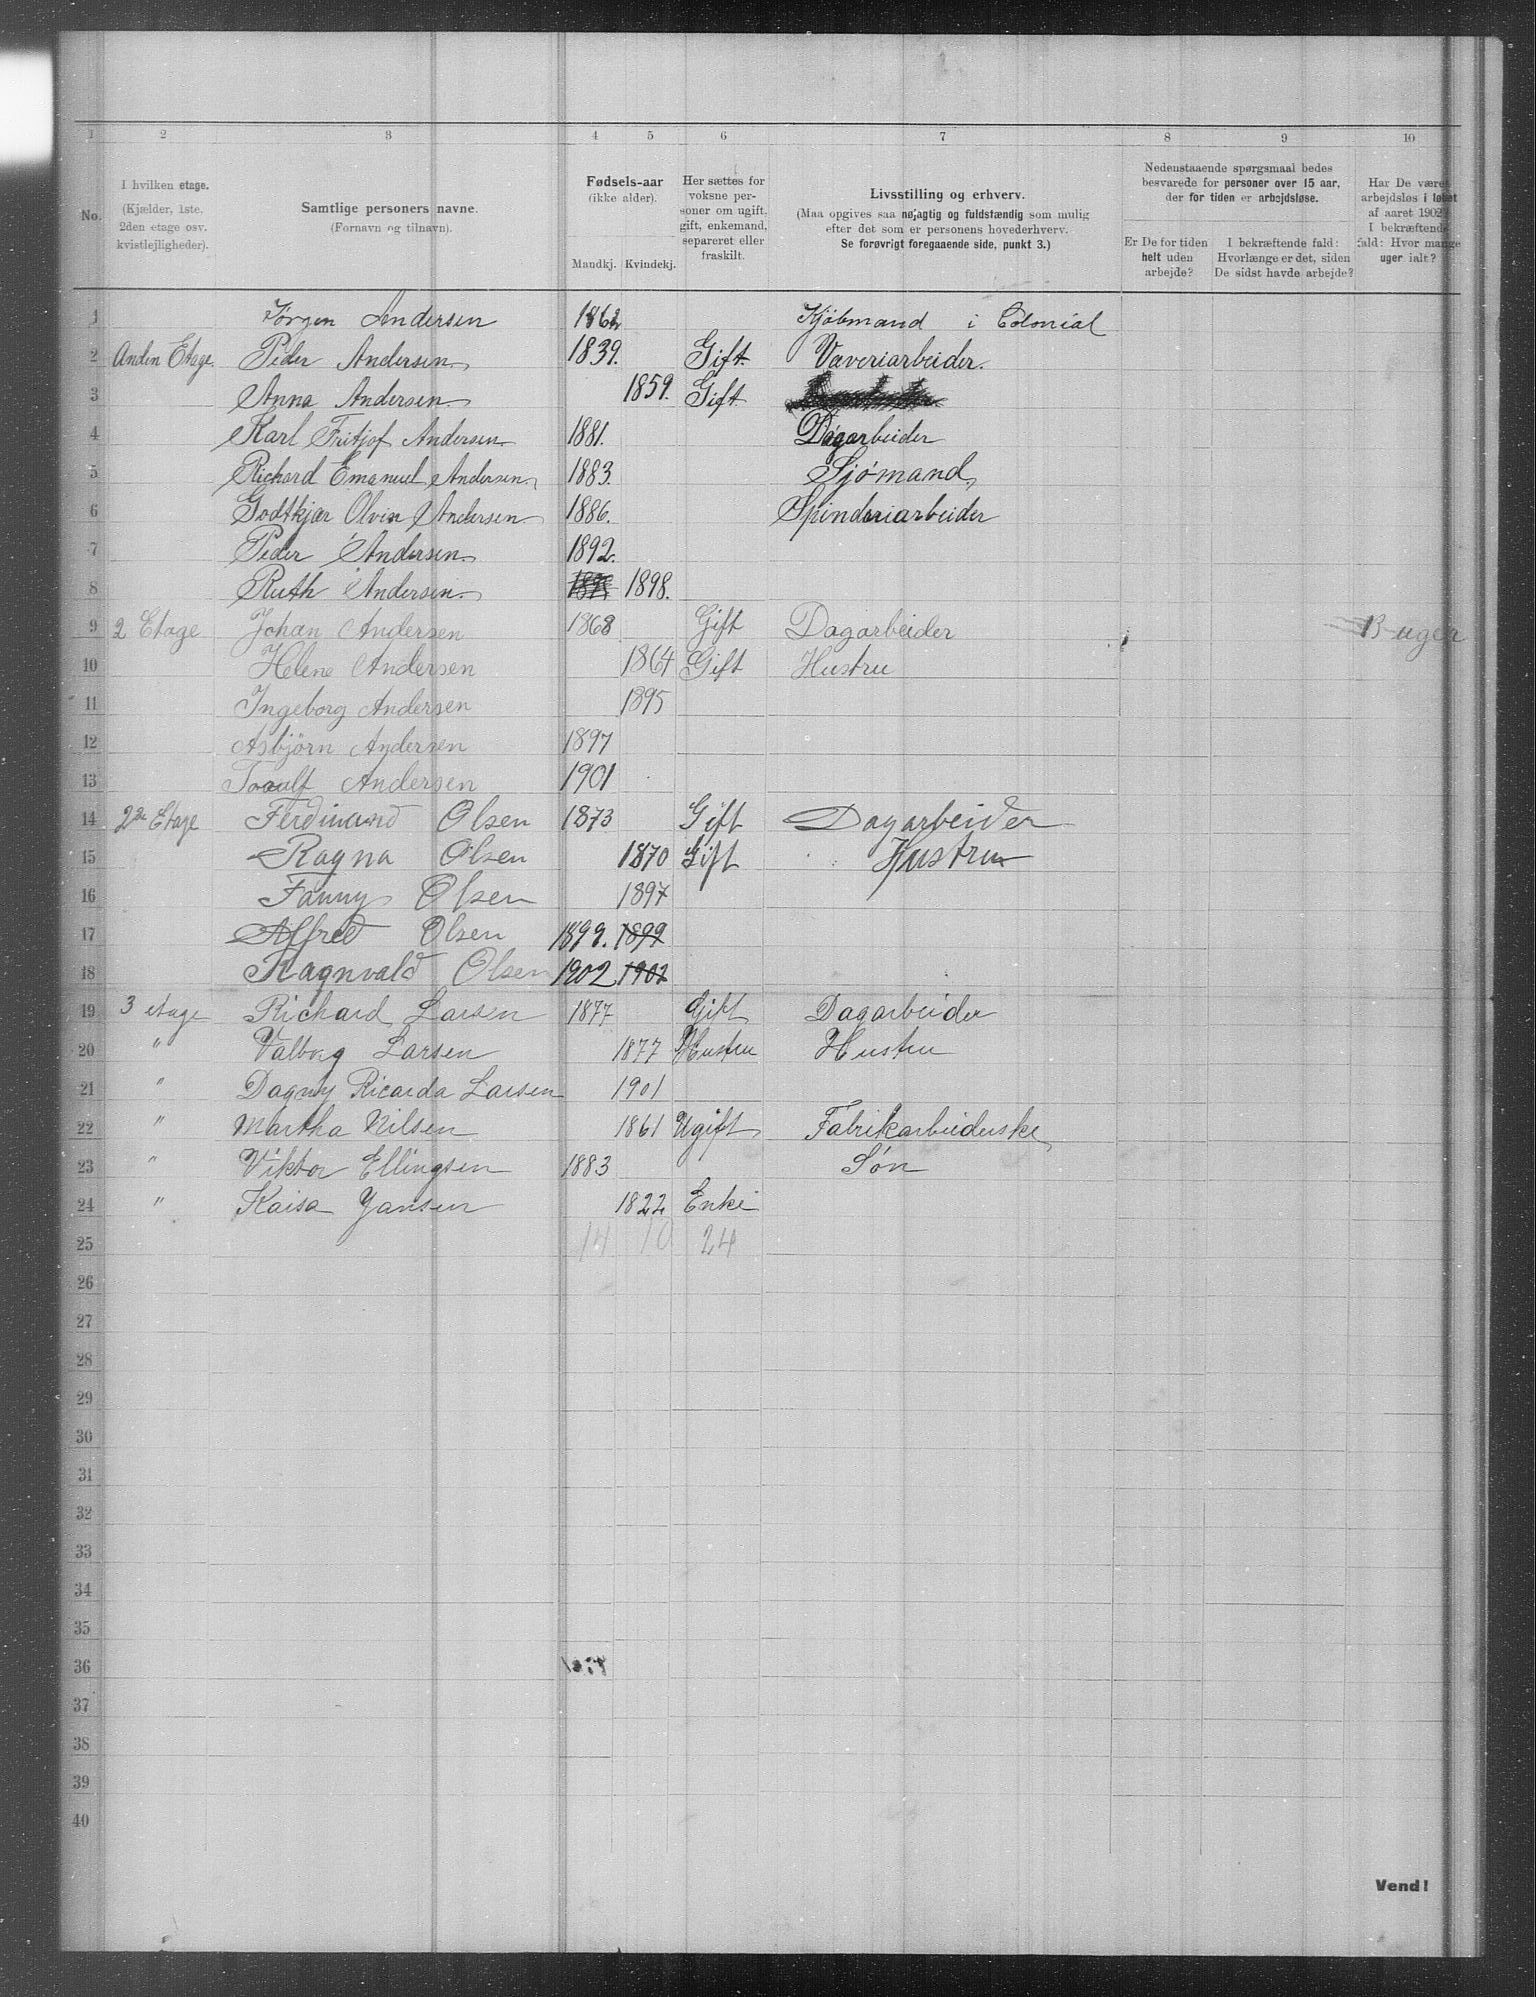 1 2 3 4 5 6 7 8 9 10
No.
I hvilken etage.
(Kjælder, 1ste,
2den etage osv.
kvistlejligheder).
Samtlige personers navne.
(Fornavn og tilnavn).
Fødsels-aar
(ikke alder).
Mandkj. Kvindekj.
Her sættes for
voksne per-
soner om ugift,
gift, enkemand,
separeret eller
fraskilt.
Livsstilling og erhverv.
(Maa opgives saa nøjagtig og fuldstændig som mulig
efter det som er personens hovederhverv.
Se forøvrigt foregaaende side, punkt 3.)
Nedenstaaende spørgsmaal bedes
besvarede for personer over 15 aar,
der for tiden er arbejdsløse.
Er De for tiden
helt uden
arbejde?
I bekræftende fald:
Hvorlænge er det, siden
De sidst havde arbejde?
Har De været
arbejdsløs i løbet
af aaret 1902?
I bekræftende
fald: Hvor mange
uger ialt?
1 Jørgen Andersen 1862 Kjøbmand i Colonial
2 Anden Etage. Peder Andersen 1839. Gift Væveriarbeider.
3 Anna Andersen 1859. Gift
4 Karl Fritjof Andersen 1881. Dagarbeider
5 Richard Emanuel Andersen 1883. Sjømand
6 Godtkjær Olvin Andersen 1886. Spinderiarbeider
7 Peder Andersen 1892.
8 Ruth Andersen 1898 1898.
9 2 Etage Johan Andersen 1868 Gift Dagarbeider 13 uger
10 Helene Andersen 1864 Gift Hustru
11 Ingeborg Andersen 1895
12 Asbjörn Andersen 1897
13 Andersen 1901
14 2den Etage Ferdinand Olsen 1873 Gift Dagarbeider
15 Ragna Olsen 1870 Gift Hustru
16 Fanny Olsen 1897
17 Alfred Olsen 1899. 1899
18 Ragnvald Olsen 1902 1902
19 3 etage Richard Larsen 1877 Gift Dagarbeider
20 " Valbrg Larsen 1877 Hustru Hustru
21 " Dagny Ricarda Larsen 1901
22 " Martha Nilsen 1861 Ugift Fabrikarbeiderske
23 " Viktor Ellingsen 1883 Søn
24 " Kaisa Jansen 1822 Enke
25 14 10 24
26
27
28
29
30
31
32
33
34
35
36
37
38
39
40
Vend!